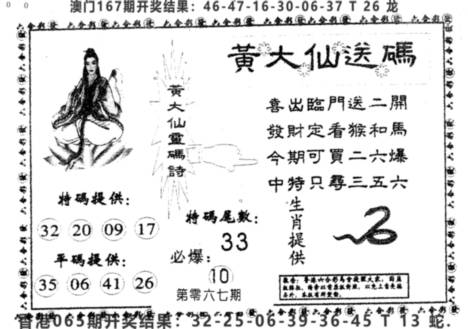 澳门167期开奖结果：46-47-16-30-06-37 T 26 龙
黃大仙送碼
黃大仙靈碼詩
喜出臨門送二開
發財定看猴和馬
今期可買二六爆
中特只尋三五六
特碼提供：
32 20 09 17
平碼提供：
35 06 41 26
特碼尾數：
33
必爆：
10
第零六七期
生肖提供
香港065期开奖结果：32-25-06-39-36-45 T 13 蛇